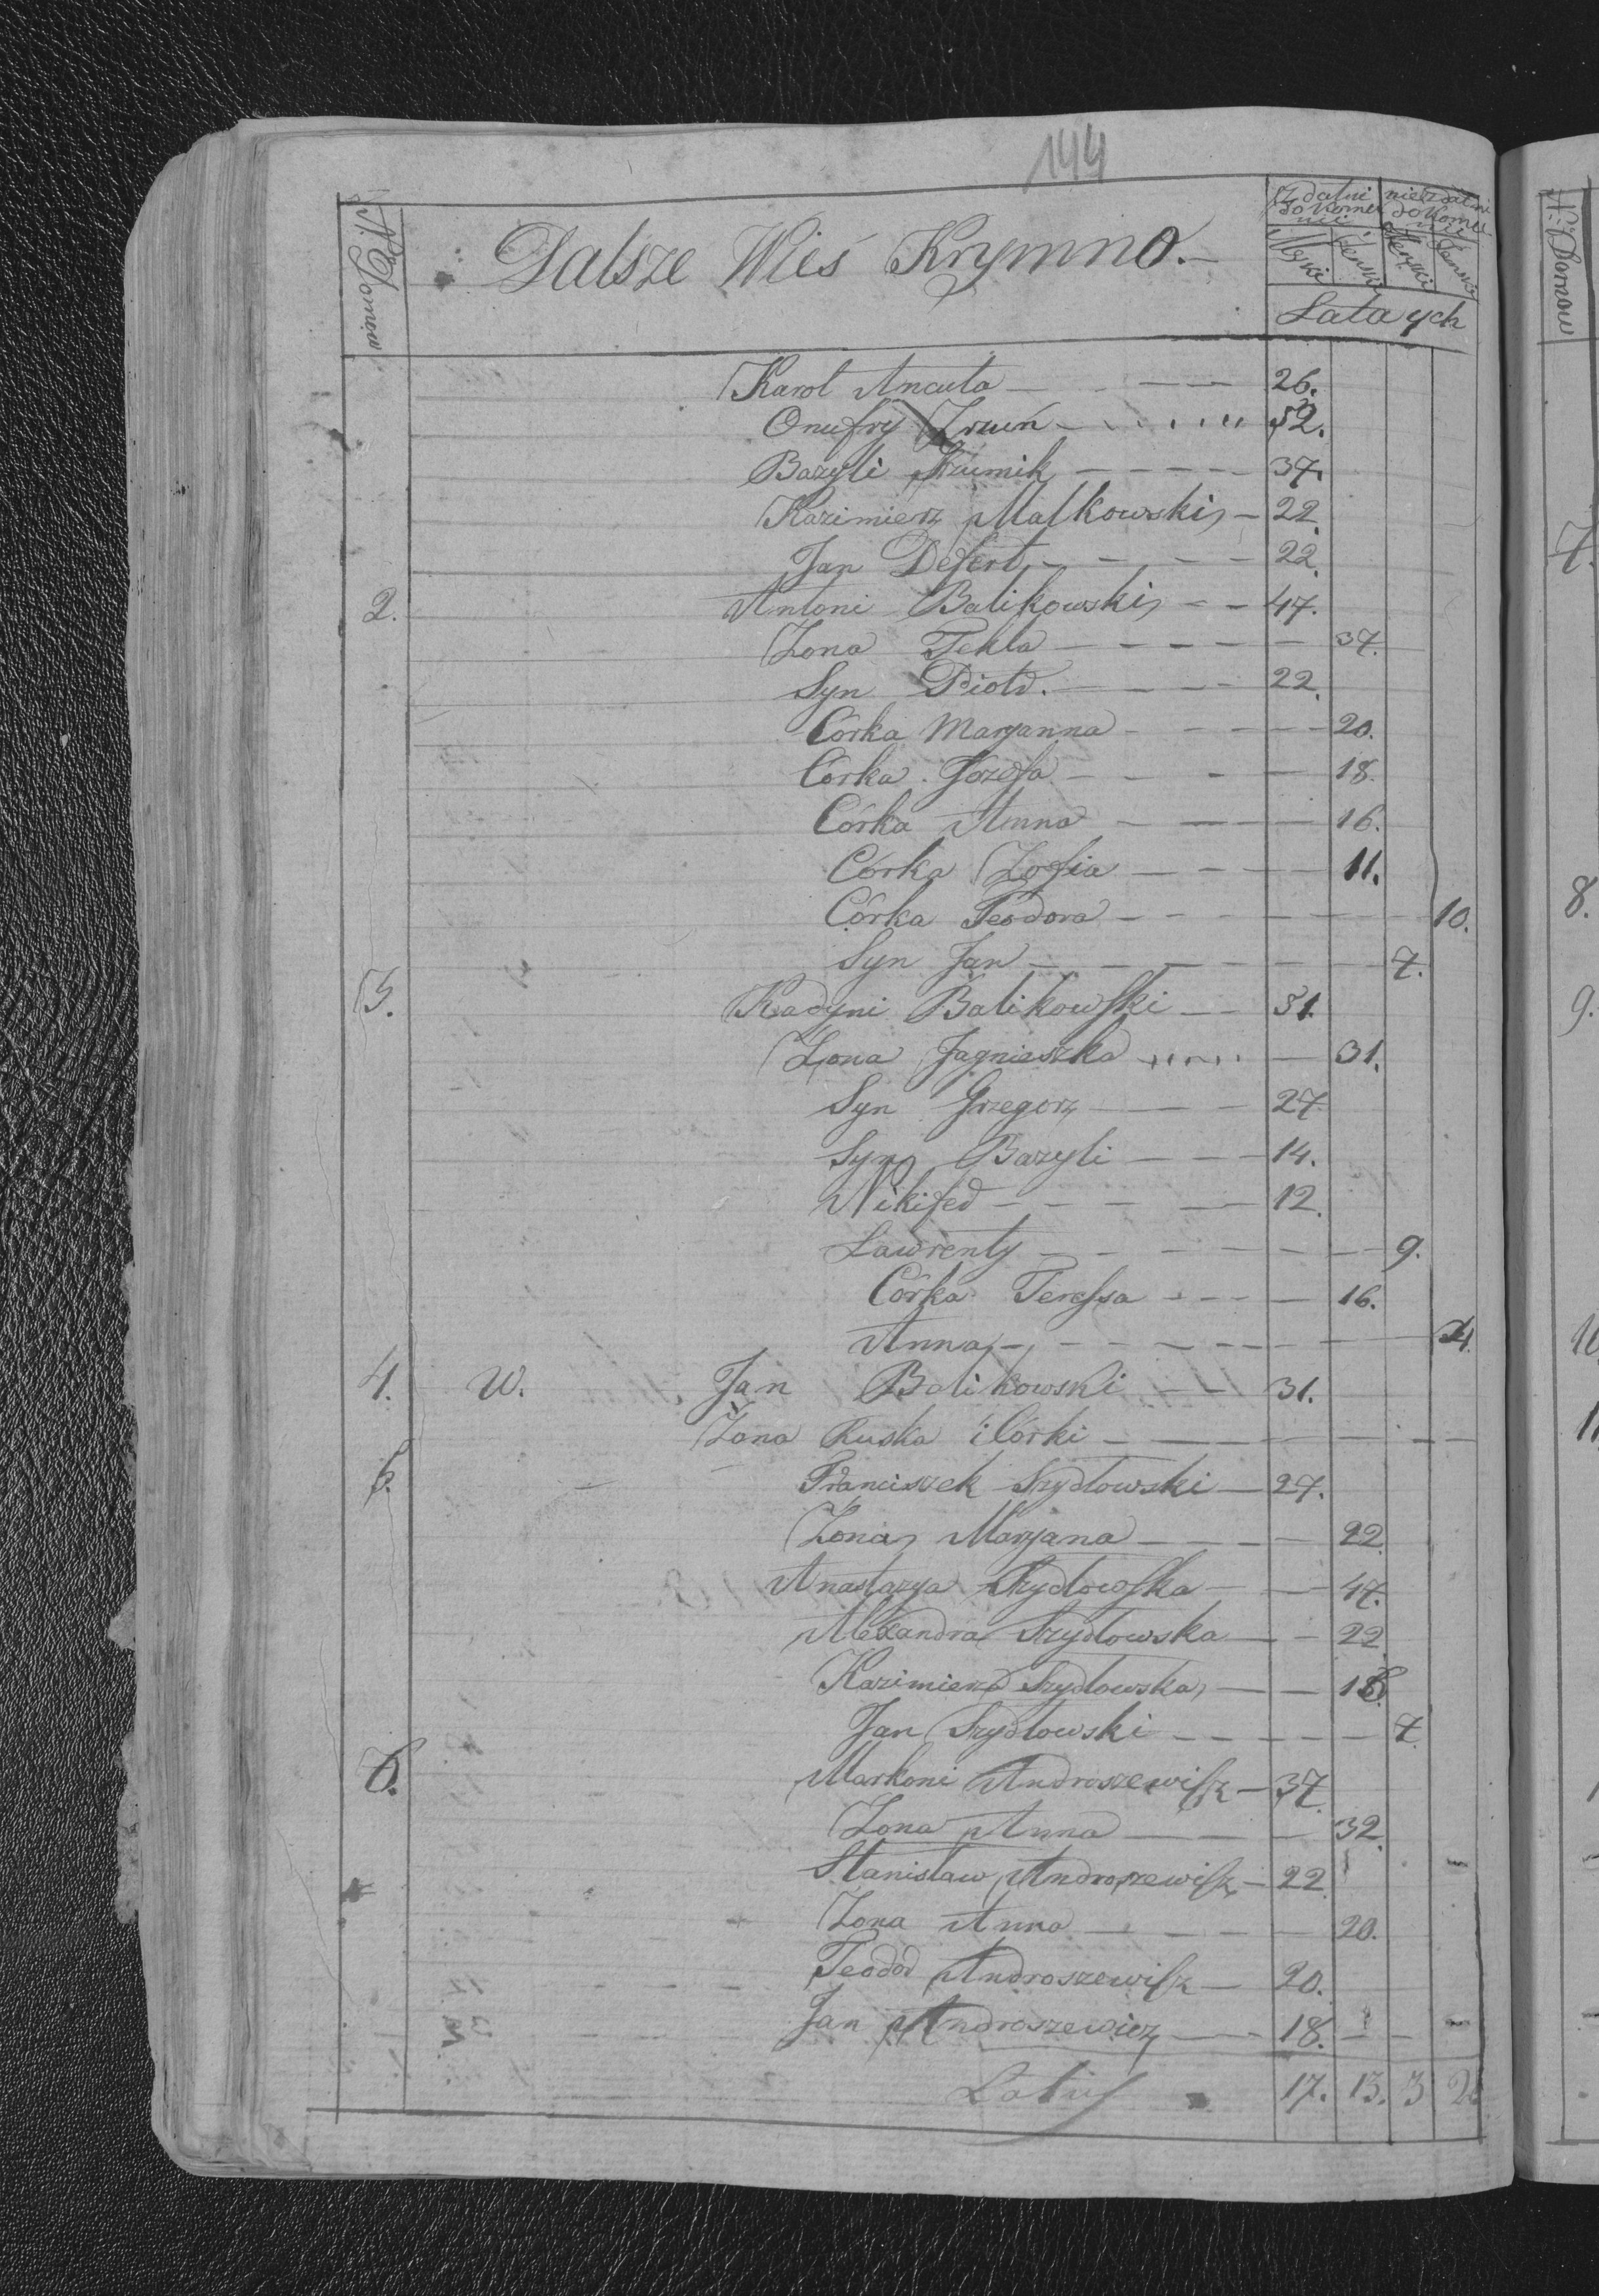 144
N: Domow
Dalsze Wieś Krymno.
zdalni do Komunii
niezdalni do Komunii
Męzki Zenski Męzki Zenski
Lata ych
Karol Ancuta 26.
Onufry 52.
Bazyli 37.
Kazimierz Małkowski 22.
Jan Defert 22.
2. Antoni Balikowski 47.
Zona Tekla 37.
Syn Piotr. 22.
Córka Maryanna 20.
Córka Jozefa 18.
Córka Anna 16.
Córka Zofia 11.
Córka Teodora 10.
Syn Jan 7.
3. Balikowski 51.
Zona Jagnieszka 31.
Syn Grzegorz 27
Syn Bazyli 14.
Nikifed 12.
Lawrenty 9.
Córka Teressa 16.
Anna 4.
4. W. Jan Balikowski 31.
Żona Ruska i Córki
5. Franciszek Szydłowski 27.
Zona Maryana 22
Anastazya Szydłowska 47.
Alexandra Szydłowska 22
Kazimiera Szydłowska 18
Jan Szydłowski 7.
6. Markoni Androszewisz 37.
Zona Anna 32.
Stanisław Androszewisz 22.
Zona Anna 20.
Teodor Androszewisz 20.
Jan Androszewicz 18.
Latus 17. 13. 3 2
N: Domow
7.
8.
9.
10
11